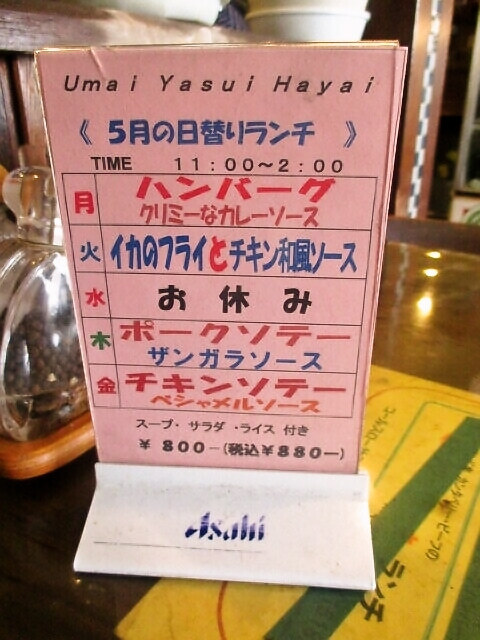 Umai Yasui Hayai
《 5月の日替りランチ 》
TIME 11:00～2:00
月 ハンバーグ
クリミーなカレーソース
火 イカのフライとチキン和風ソース
水 お休み
木 ポークソテー
ザンガラソース
金 チキンソテー
ベシャメルソース
スープ・サラダ・ライス 付き
¥800－(税込¥880－)
Asahi
ランチ